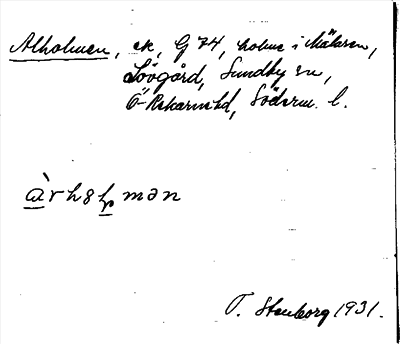 Alholmen, ek, G 74, holme i Mälaren,
Lövgård, Sundby sn,
Ö Rekarne hd, Söderm. l.
àrhol̥mən
T. Stenborg 1931.